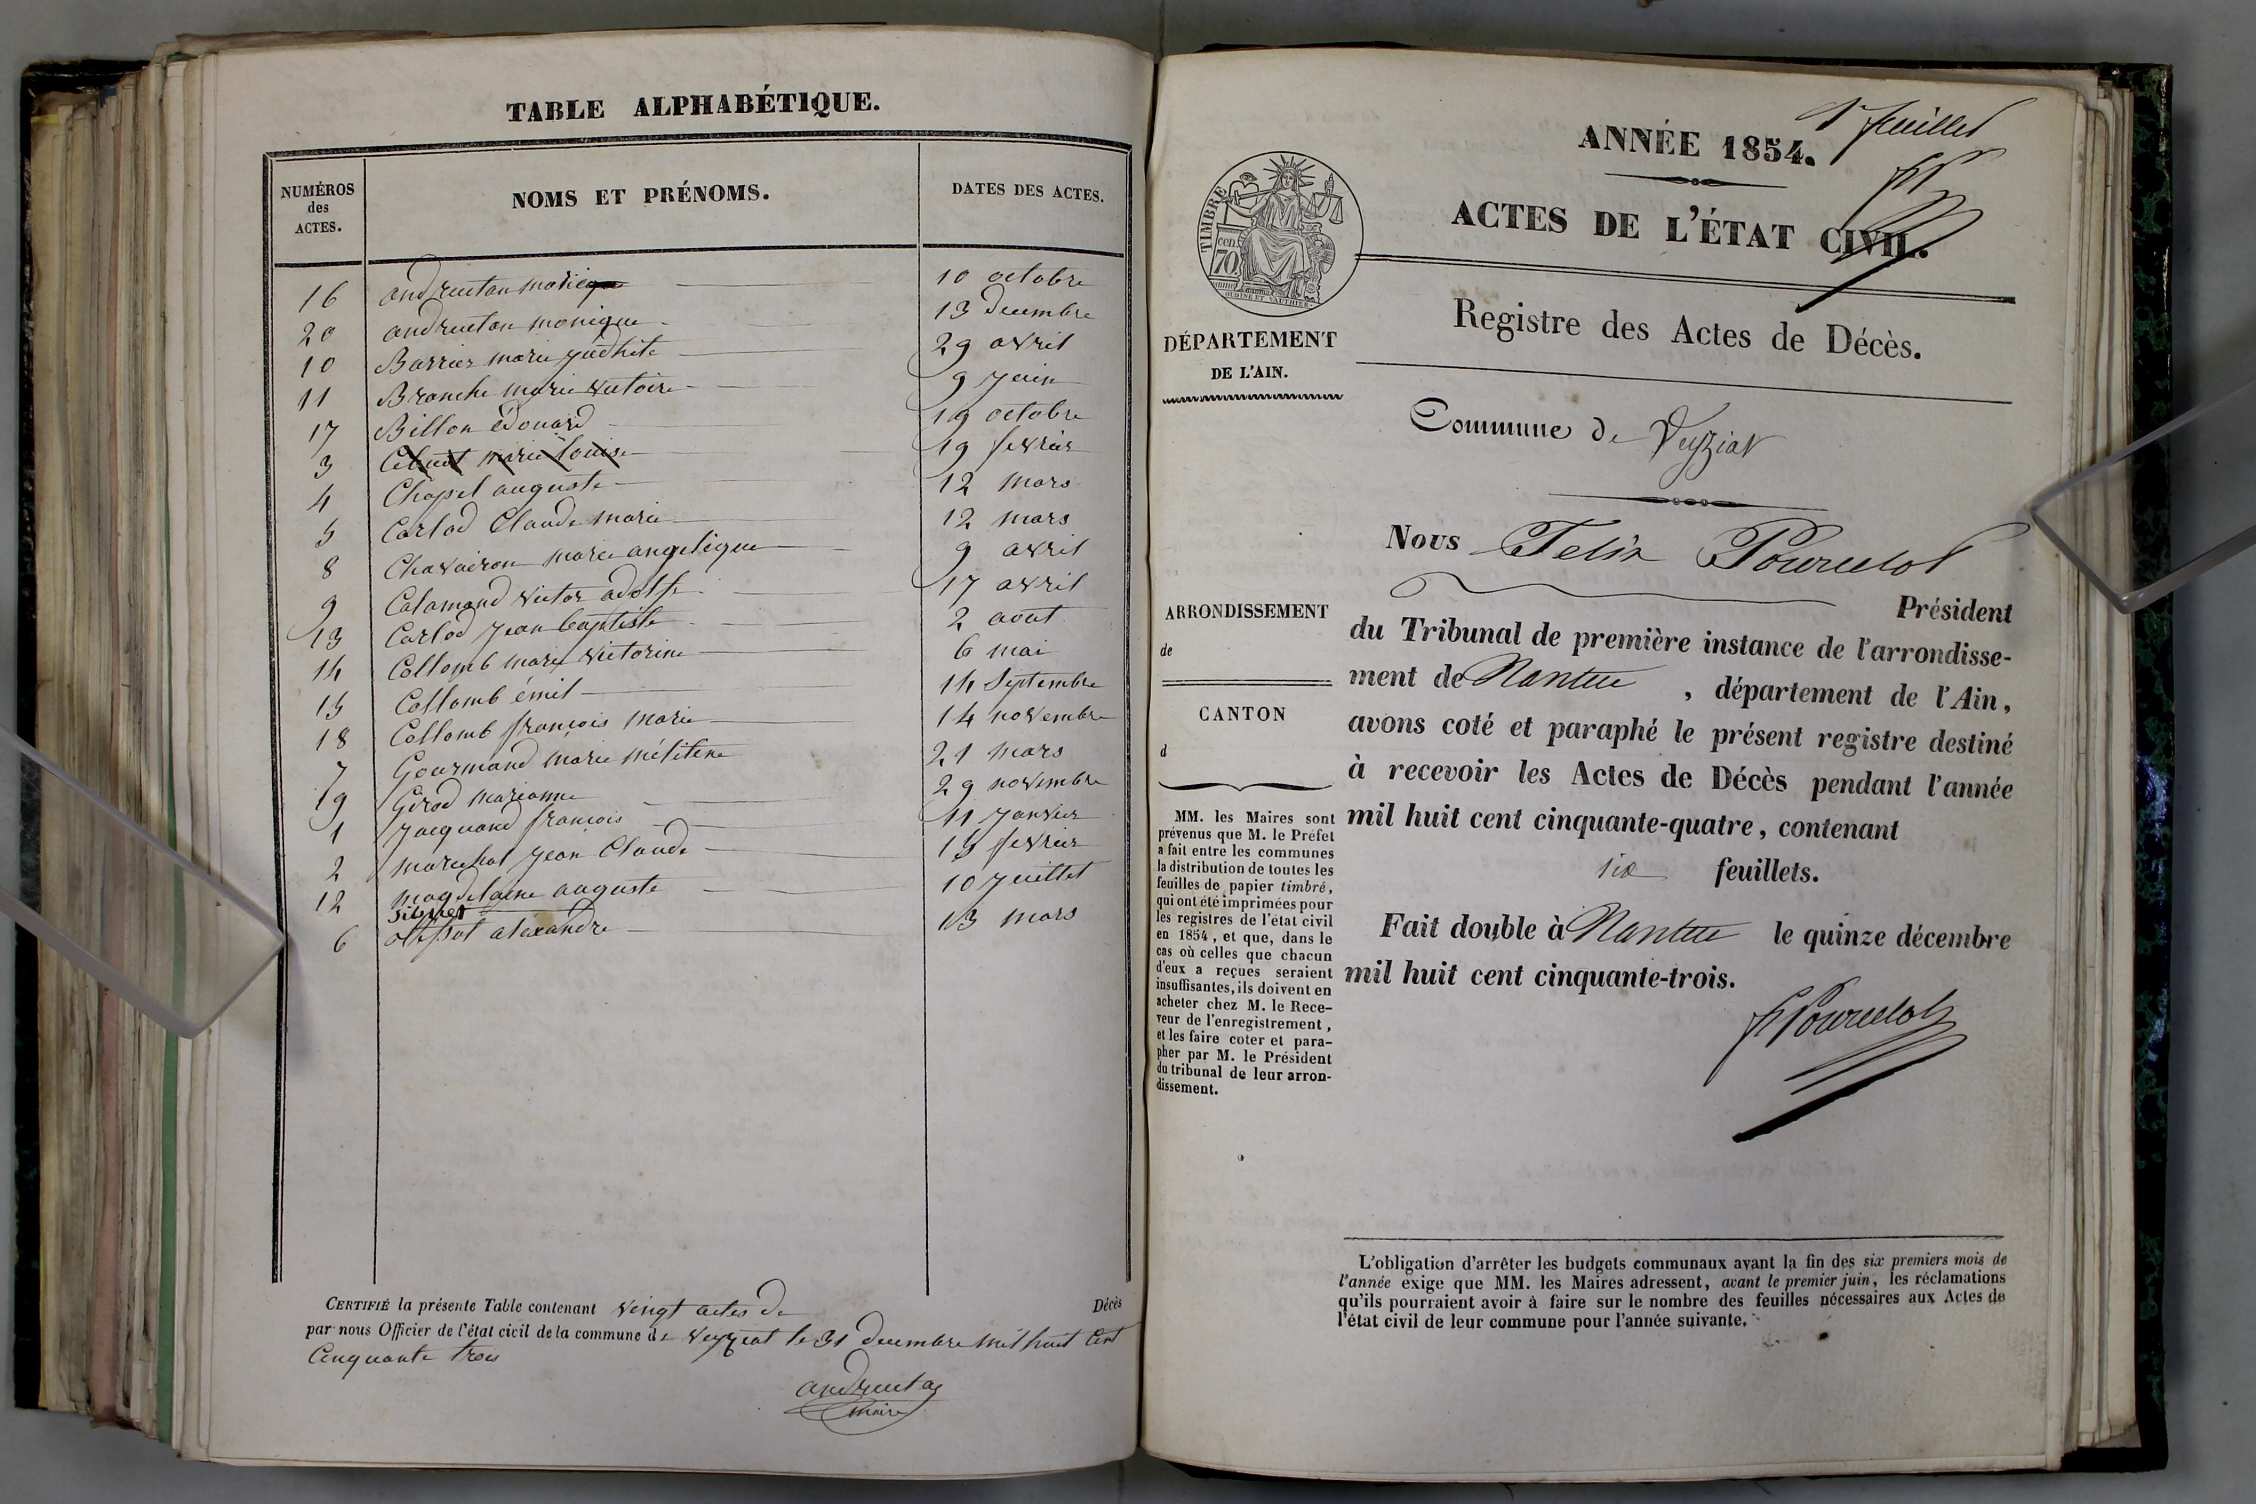 TABLE ALPHABÉTIQUE.
NUMÉROS
des
ACTES.
NOMS ET PRÉNOMS.
DATES DES ACTES.
16 andruetan marie 10 octobre
20 andruetan monique 13 decembre
10 Barrier marie judhite 29 avril
11 Branche marie victoire 9 juin
17 Billon édouard 19 octobre
3 marie louise 19 fevrier
4 Chapel auguste 12 mars
5 Carlod Claude marie 12 mars
8 Chavairon marie angelique 9 avril
9 Calamand victor adolfe 17 avril
13 Carlod jean baptiste 2 aout
14 Collomb marie victorine 6 mai
15 Collomb émil 14 septembre
18 Collomb françois marie 14 novembre
7 Gourmand marie mélitene 21 mars
19 Girod marianne 29 novembre
1 jacquand françois 11 janvier
2 marechal jean Claude 15 fevrier
12 magdelaine auguste 10 juillet
6 alexandre 13 mars
CERTIFIÉ la présente Table contenant vingt actes de Décès
par nous Officier de l'état civil de la commune de veyziat le 31 decembre mil huit cent
cinquante trois
maire
1r feuillet
ANNÉE 1854.
ACTES DE L'ÉTAT CIVIL.
TIMBRE
70 cen.
Registre des Actes de Décès.
DÉPARTEMENT
DE L'AIN.
Commune de Veyziat
Nous Felix Pourcelot
Président
ARRONDISSEMENT
de
CANTON
d
du Tribunal de première instance de l'arrondisse-
ment de Nantua, département de l'Ain,
avons coté et paraphé le présent registre destiné
à recevoir les Actes de Décès pendant l'année
mil huit cent cinquante-quatre, contenant
six feuillets.
Fait double à Nantua le quinze décembre
mil huit cent cinquante-trois.
F Pourcelot
MM. les Maires sont
prévenus que M. le Préfet
a fait entre les communes
la distribution de toutes les
feuilles de papier timbré,
qui ont été imprimées pour
les registres de l'état civil
en 1854, et que, dans le
cas où celles que chacun
d'eux a reçues seraient
insuffisantes, ils doivent en
acheter chez M. le Rece-
veur de l'enregistrement,
et les faire coter et para-
pher par M. le Président
du tribunal de leur arron-
dissement.
L'obligation d'arrêter les budgets communaux avant la fin des six premiers mois de
l'année exige que MM. les Maires adressent, avant le premier juin, les réclamations
qu'ils pourraient avoir à faire sur le nombre des feuilles nécessaires aux Actes de
l'état civil de leur commune pour l'année suivante.